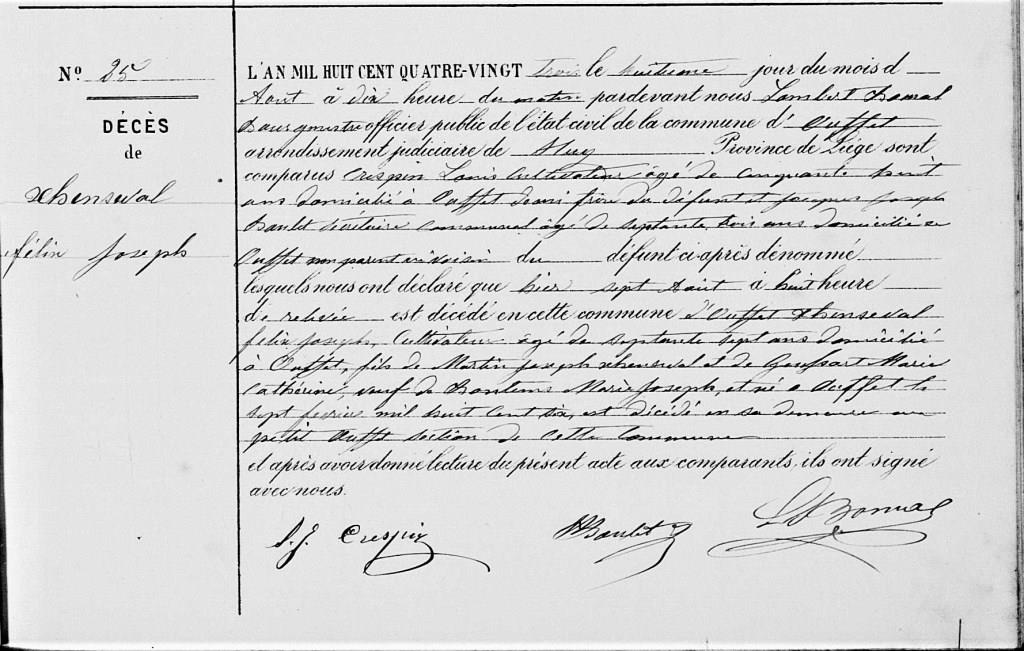 Nº 25
DÉCÈS
de
Xhenseval
félix Joseph
L'AN MIL HUIT CENT QUATRE-VINGT trois le huitieme jour du mois d
Août à dix heure du matin pardevant nous Lambert
Bourgmestre officier public de l'état civil de la commune d' Ouffet
arrondissement judiciaire de Huy Province de Liège sont
comparus Crespin Louis Cultivateur âgé de cinquante huit
ans domicilié à Ouffet demi frère du défunt et Jacques Joseph
Boulet sécrétaire communal âgé de septante trois ans domicilié à
Ouffet non parent ni voisin du défunt ci-après dénommé
lesquels nous ont déclaré que hier sept Août à huit heure
de relevée est décédé en cette commune d'Ouffet Xhenseval
félix Joseph, Cultivateur âgé de septante sept ans domicilié
à Ouffet, fils de Martin Joseph Xhenseval et de Marie
Catherine, veuf de Marie Joseph, et né à Ouffet le
sept fevrier mil huit Cent six, est décédé en sa demeure au
petit Ouffet section de cette Commune
et après avoir donné lecture du présent acte aux comparants, ils ont signé
avec nous.
Crespin Boulet